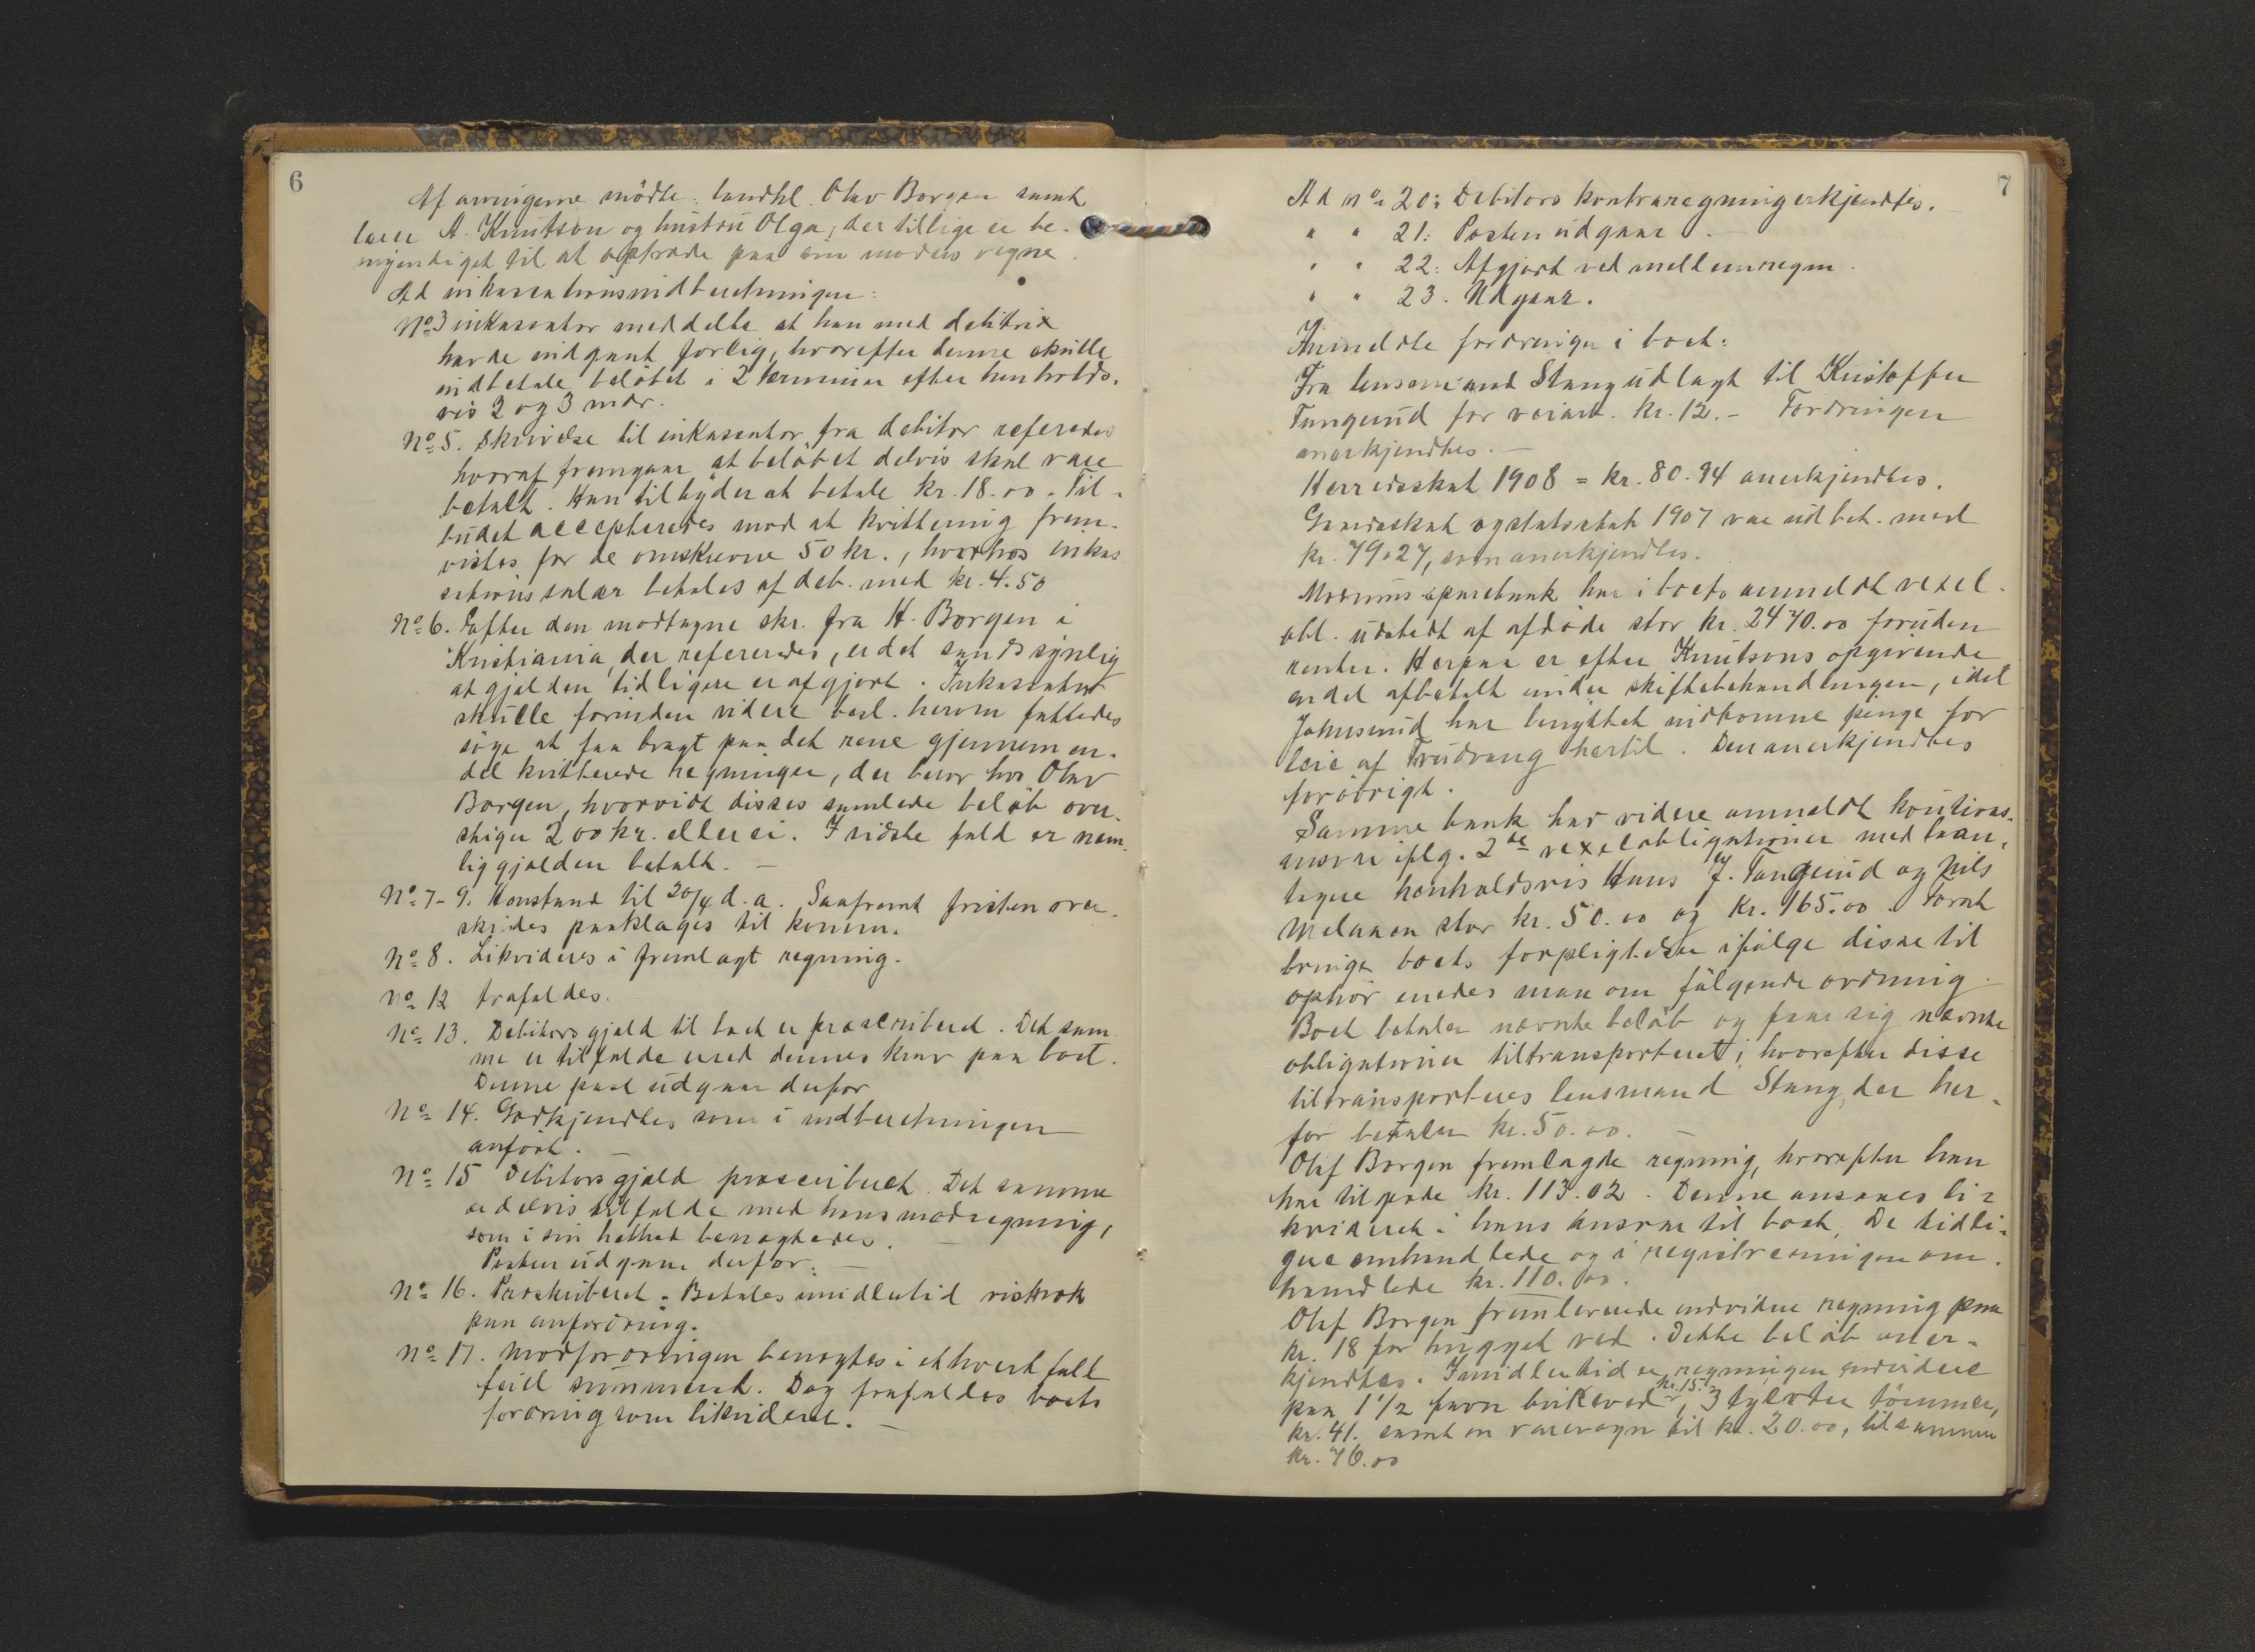 6
Af arvingerne mödte: landhl. Olav Borgen samt
lærer A. Knutson og hustru Olga, der tillige er be-
myndiget til at optræde paa sin moders vegne.
Ad inkasationsindberetningen:
No 3 inkasator meddelte at han med debitrix
havde indgaat forlig, hvorefter denne skulle
indbetale beløbet i 2 terminer efter henholds-
vis 2 og 3 mdr.
No 5. Skrivelse til inkasator fra debitor referedes
hvoraf fremgaar at beløbet delvis skal være
betalt. Han tilbyder at betale kr. 18.00. Til-
budet accepteredes mod at kvittering frem-
vistes for de omskrevne 50 kr., hvorhos inkas
sationssalær betales af deb. med kr. 4.50
No 6. Efter den modtagne skr. fra H. Borgen i
Kristiania, der refereredes, er det sandsynlig
at gjælden tidligere er afgjort. Inkasator
skulle forinden videre besl. herom fattedes
söge at faa bragt paa det rene gjennem en-
del kvitterede regninger, der beror hos Olav
Borgen, hvorvidt disses samlede beløb over-
stiger 200 kr. eller ei. I sidste fald er nem-
lig gjælden betalt. —
No 7-9. Henstand til 20/4 d.a. Saafremt fristen over-
skrides paaklages til komm.
No 8. Likvideres i fremlagt regning.
No 12 frafaldes.
No 13. Debitors gjæld til boet er præscriberet. Det sam
me er tilfælde med dennes krav paa boet.
Denne post udgaar derfor
No 14. Godkjendtes som i indberetningen
anført. —
No 15 Debitors gjæld præscriberet. Det samme
er delvis tilfælde med hans modregning,
som i sin helhed benægtedes. —
Posten udgaar derfor. —
No 16. Præskriberet. Betales imidlertid
paa anfordring.
No 17. Modfordringen benægtes i ethvert fald
feil summeret. Dog frafaldes boets
fordring som likvideret. —
7
Ad no 20: Debitors kontraregning erkjendtes.
" " 21: Posten udgaar. —
" " 22: Afgjort ved mellemregn.
" " 23. Udgaar.
Anmeldte fordringer i boet:
Fra lensmand Stang udlagt til Kristoffer
Tangerud for veiarb. kr. 12.- Fordringen
anerkjendtes. —
Herredsskat 1908 = kr. 80.94 anerkjendtes.
Herredsskat og statsskat 1907 var udbet. med
kr. 79.27, som anerkjendtes.
Modums sparebank har i boet anmeldt vexel-
obl. udstedt af afdøde stor kr. 2470.00 foruden
renter. Herpaa er efter Knutsons opgivende
en del afbetalt under skiftebehandlingen, idet
Johnsrud har benyttet indkomne penge for
leie af Trudvang hertil. Den anerkjendtes
forøvrigt.
Samme bank har videre anmeldt kautions-
ansvar iflg. 2de vexelobligationer med laan-
tagere henholdsvis Hans J. Tangerud og Nils
Melaaen stor kr. 50.00 og kr. 165.00. For at
bringe boets forpligtelser ifølge disse til
ophør enedes man om følgende ordning.
Boet betaler nævnte beløb og faar sig nævnte
obligationer tiltransporteret; hvorefter disse
tiltransporteres lensmand Stang, der her-
for betaler kr. 50.00. —
Olaf Borgen fremlagde regning, hvorefter han
har tilgode kr. 113.02. Denne ansaaes li-
kvideret i hans ansvar til boet, De tidli-
gere omhandlede og i registreringen om-
handlede kr. 110.00.
Olaf Borgen fremleverede endvidere regning paa
kr. 18 for hugget ved. Dette beløb aner-
kjendtes. Imidlertid er regningen endvidere
paa 1 1/2 favn birkeved kr. 15.-, 3 tylvter tømmer,
kr. 41. samt en varevogn til kr. 20.00, tilsammen
kr. 76.00